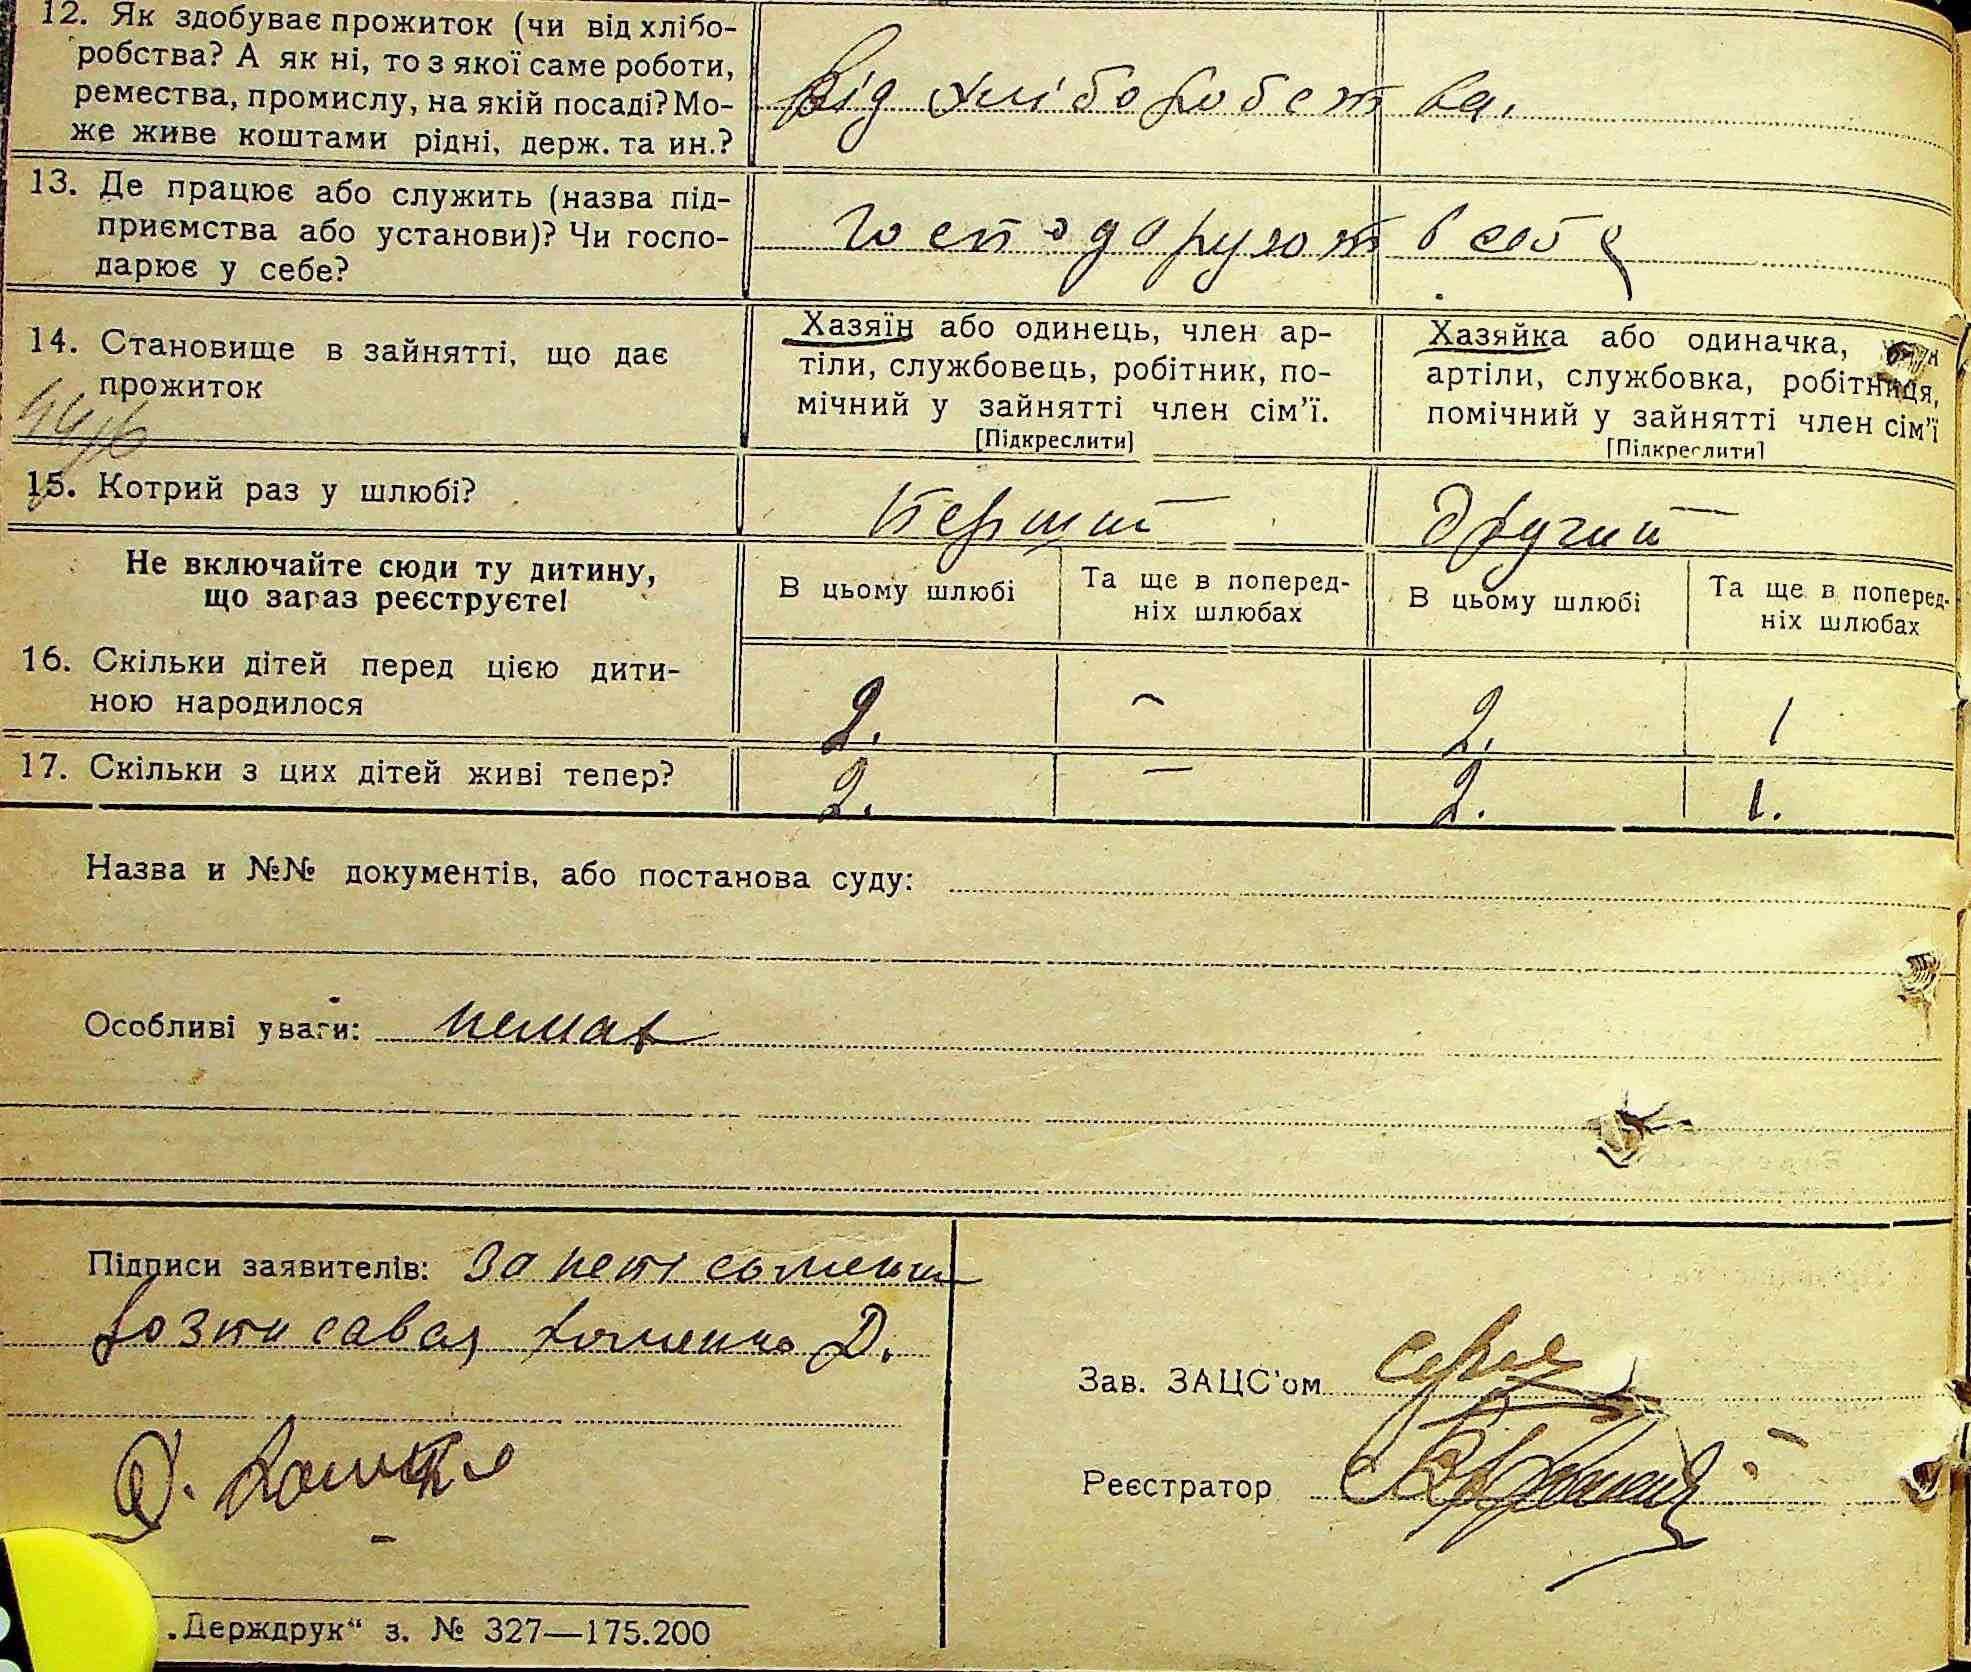 12. Як здобуває прожиток (чи від хлібо-
робства? А як ні, то з якої саме роботи,
ремества, промислу, на якій посаді? Мо-
же живе коштами рідні, держ. та ин.?
Від хліборобства.
13. Де працює або служить (назва під-
приємства або установи)? Чи госпо-
дарює у себе?
господарують в себе
14. Становище в зайнятті, що дає
прожиток
Хазяїн або одинець, член ар-
тіли, службовець, робітник, по-
мічний у зайнятті член сім'ї.
[Підкреслити]
Хазяйка або одиначка,
артіли, службовка, робітниця,
помічний у зайнятті член сім'ї
[Підкреслити]
15. Котрий раз у шлюбі?
Перший
другий
Не включайте сюди ту дитину,
що зараз реєструєте!
В цьому шлюбі
Та ще в поперед-
ніх шлюбах
В цьому шлюбі
Та ще в поперед-
ніх шлюбах
16. Скільки дітей перед цією дити-
ною народилося
2. - 2. 1
17. Скільки з цих дітей живі тепер?
2. - 2. 1.
Назва и №№ документів, або постанова суду:
Особливі уваги: немає
Підписи заявителів: за
Д.
Зав. ЗАЦС'ом
Реєстратор
„Держдрук“ з. № 327—175.200